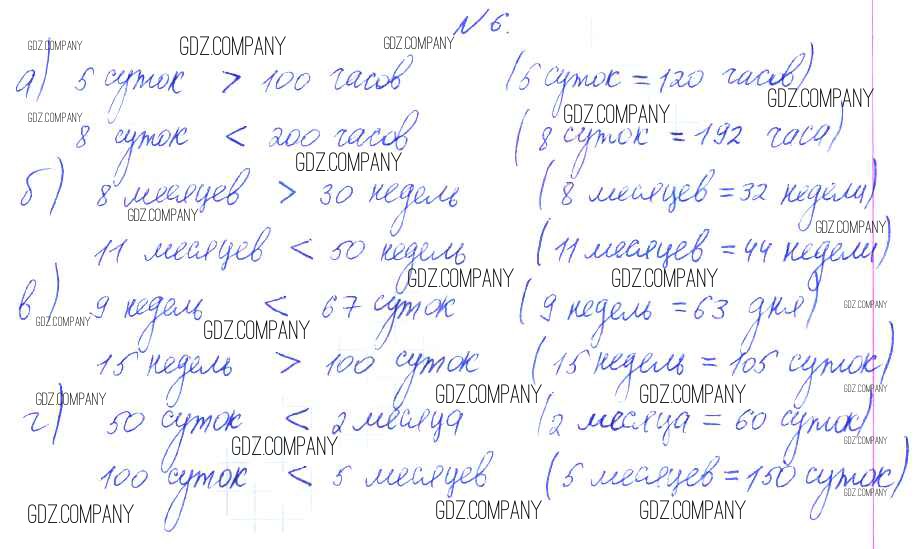 № 6.
GDZ.COMPANY GDZ.COMPANY GDZ.COMPANY
а) 5 суток > 100 часов (5 суток = 120 часов)
GDZ.COMPANY GDZ.COMPANY GDZ.COMPANY
8 суток < 200 часов (8 суток = 192 часа)
GDZ.COMPANY
б) 8 месяцев > 30 недель (8 месяцев = 32 недели)
GDZ.COMPANY GDZ.COMPANY
11 месяцев < 50 недель (11 месяцев = 44 недели)
GDZ.COMPANY GDZ.COMPANY
в) 9 недель < 67 суток (9 недель = 63 дня)
GDZ.COMPANY GDZ.COMPANY GDZ.COMPANY
15 недель > 100 суток (15 недель = 105 суток)
GDZ.COMPANY GDZ.COMPANY GDZ.COMPANY GDZ.COMPANY
г) 50 суток < 2 месяца (2 месяца = 60 суток)
GDZ.COMPANY GDZ.COMPANY
100 суток < 5 месяцев (5 месяцев = 150 суток)
GDZ.COMPANY GDZ.COMPANY GDZ.COMPANY GDZ.COMPANY